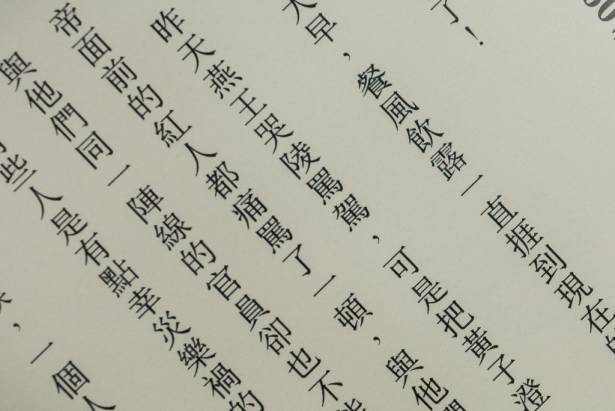 了！
大早，餐風飲露一直捱到現在的
昨天燕王哭陵罵駕，可是把黃子澄
帝面前的紅人都痛罵了一頓，與他們
與他們同一陣線的官員卻也不能
些人是有點幸災樂禍的
，一個人